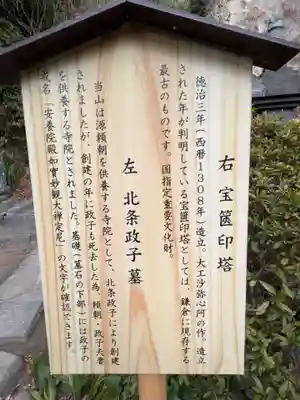 右 宝篋印塔
徳治三年（西暦1308年）造立。大工沙弥心阿の作。造立
された年が判明している宝篋印塔としては、鎌倉に現存する
最古のものです。国指定重要文化財。
左 北条政子墓
当山は源頼朝を供養する寺院として、北条政子により創建
されましたが、創建の年に政子も死去した為、頼朝・政子夫妻
を供養する寺院とされました。基礎（墓石の下部）には政子の
戒名「安養院殿如實妙観大禅定尼」の文字が確認できます。